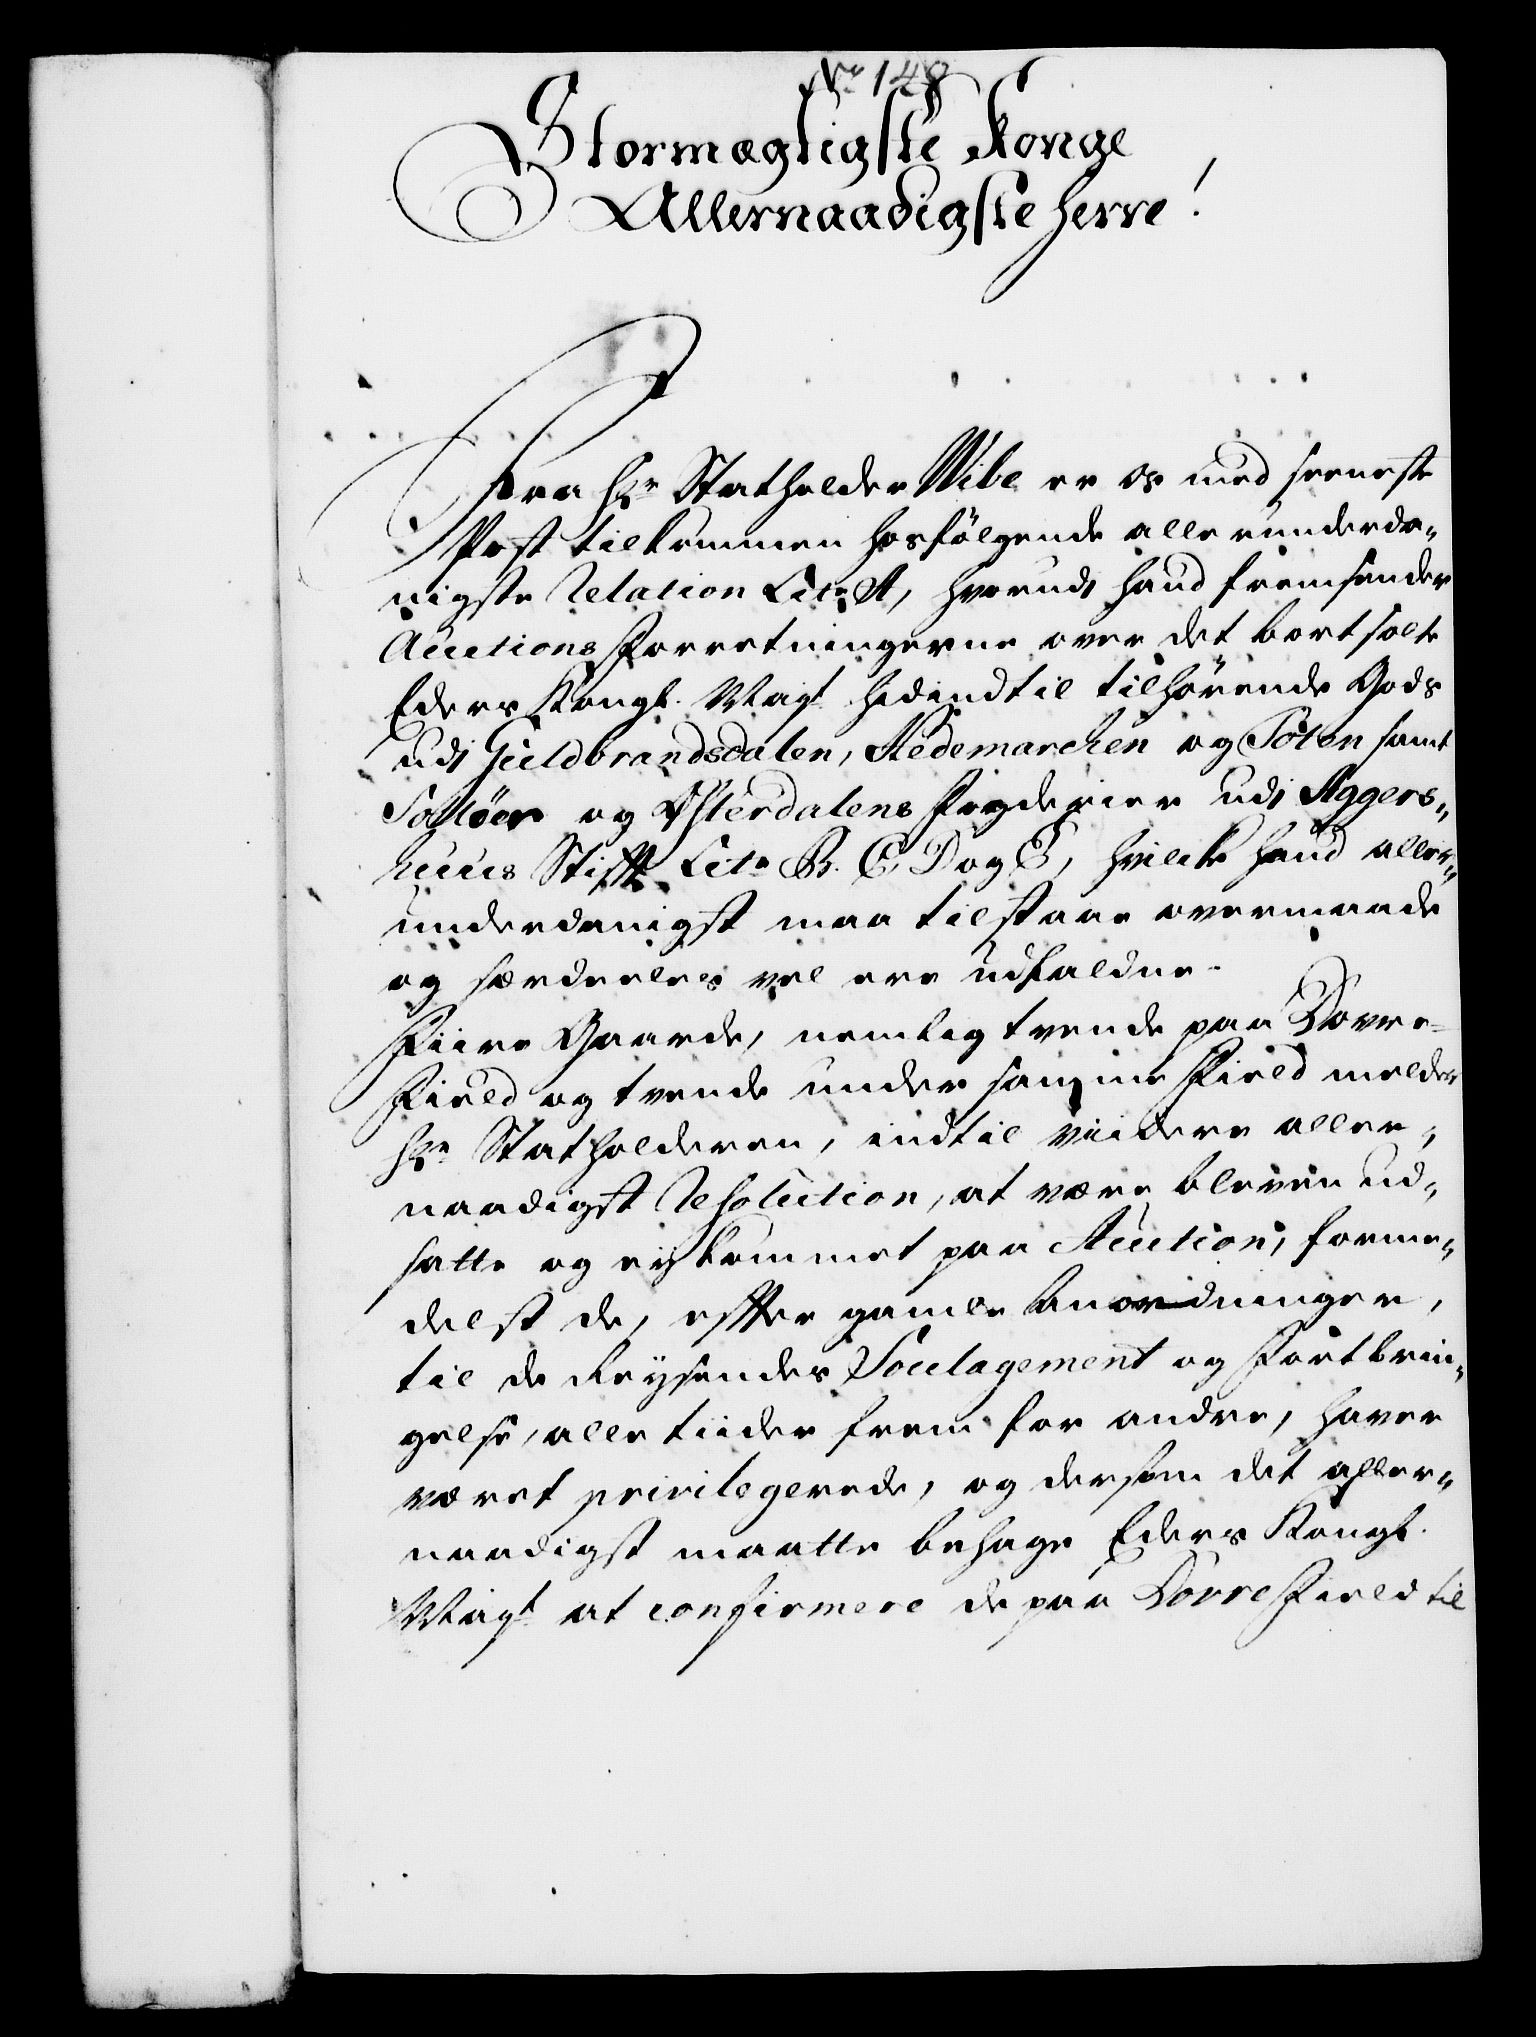 No 148
Stormægtigste Konge
Allernaadigste Herre!
Fra Hr Statholder Wibe er os med seeneste
Post tilkommen hosfölgende allerunderda-
nigste Relation Lit: A, hvorudi hand fremsender
Auctions Forretningerne over det bortsolte
Eders Kongl. Mayt hidindtil tilhörende Gods
udi Guldbrandsdalen, Hedemarchen og Toten samt
Soelöer og Østerdalens Fogderier udi Aggers-
huus Stifft Lit: B. C, D og E, hvilke hand aller-
underdanigst maa tilstaae overmaade
og særdeeles vel ere udfaldne.
Fiire Gaarde, nemlig tvende paa Dovre-
Field og tvende under samme Field melder
Hr Statholderen, indtil viidere aller-
naadigst Resolution, at være bleven ud-
satte og ey kommet paa Auction, forme-
delst de, effter gamle Anordninger,
til de Reysendes Soulagement og Fortbrin-
gelse, alletiider frem for andre, haver
været privilegerede, og dersom det aller-
naadigst maatte behage Eders Kongl.
Mayt at confirmere de paa Dovrefield til